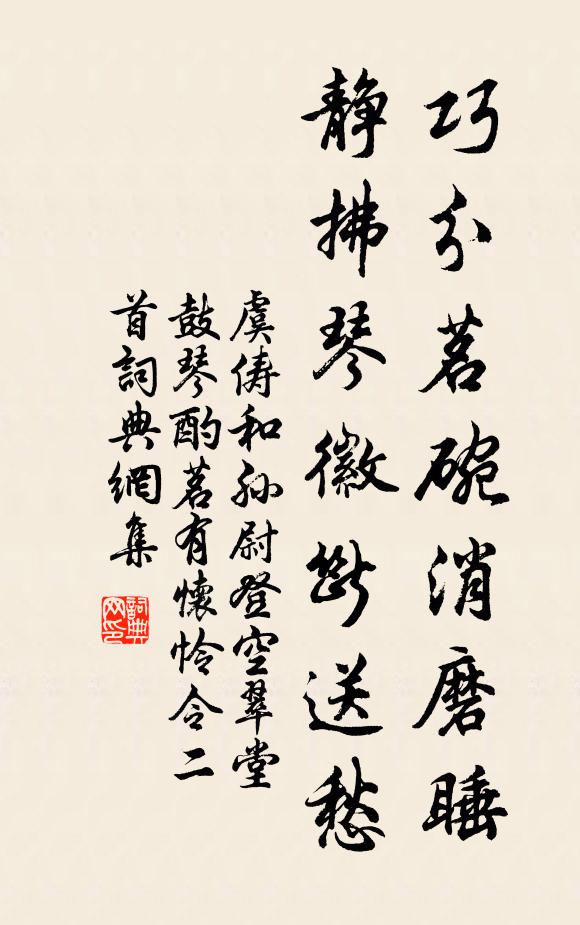 巧分茗碗消磨睡
静拂琴徽断送愁
虞俦和孙尉登空翠堂
鼓琴酌茗有怀怜令二
首詞典網集
詞典
网印